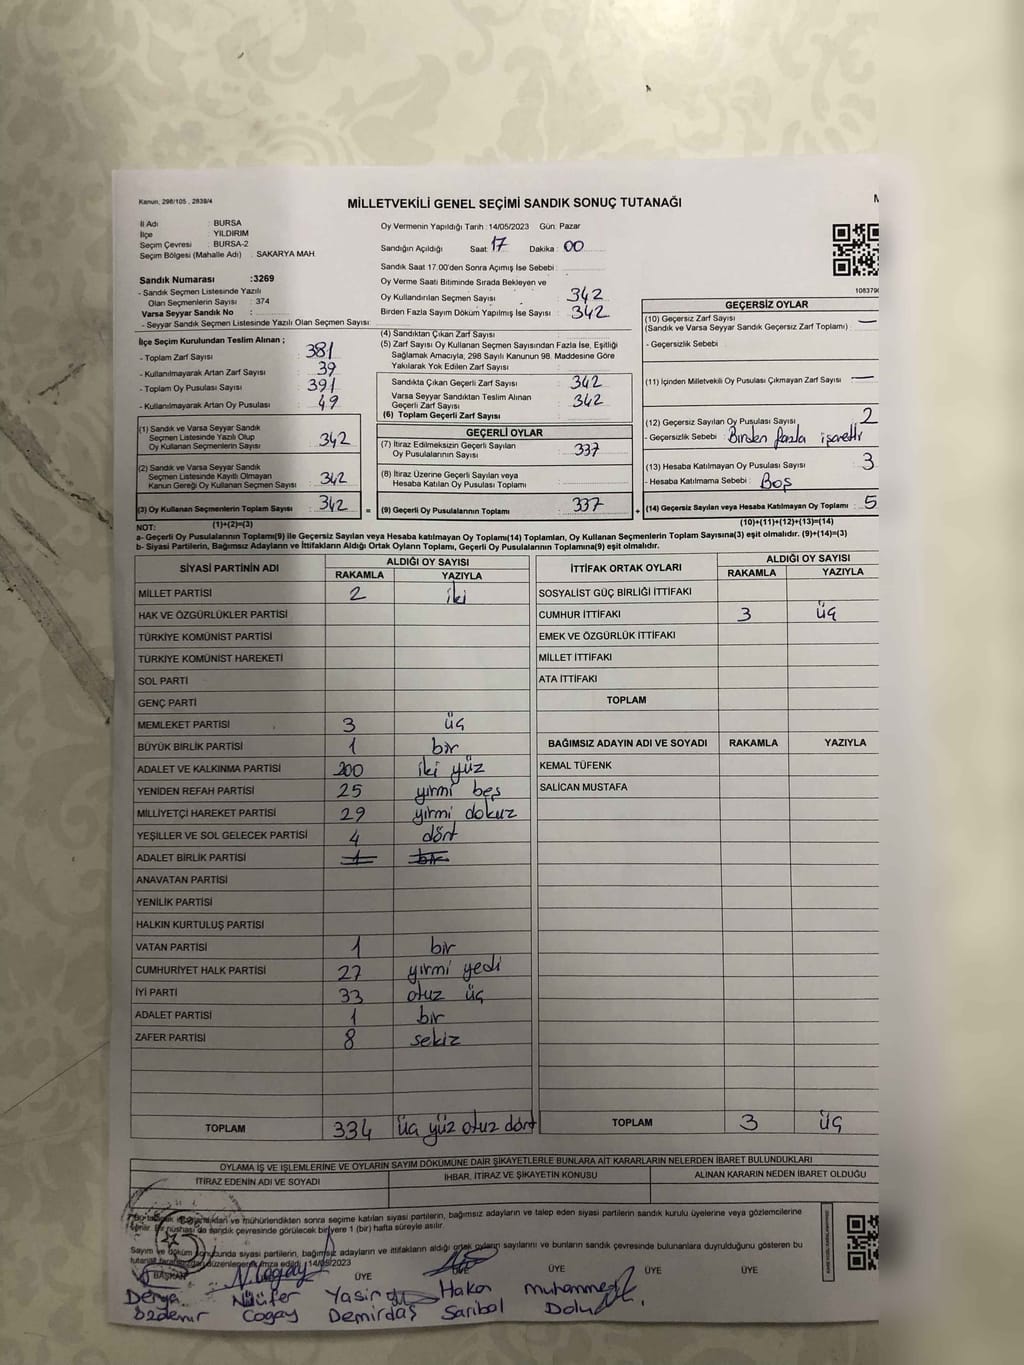 Kanun, 298/105 , 2839/4
MİLLETVEKİLİ GENEL SEÇİMİ SANDIK SONUÇ TUTANAĞI
İl Adı : BURSA
İlçe : YILDIRIM
Seçim Çevresi : BURSA-2
Seçim Bölgesi (Mahalle Adı) : SAKARYA MAH.
Sandık Numarası :3269
- Sandık Seçmen Listesinde Yazılı
Olan Seçmenlerin Sayısı : 374
Varsa Seyyar Sandık No :
- Seyyar Sandık Seçmen Listesinde Yazılı Olan Seçmen Sayısı:
Oy Vermenin Yapıldığı Tarih :14/05/2023 Gün: Pazar
Sandığın Açıldığı Saat: 17 Dakika : 00
Sandık Saat 17.00'den Sonra Açımış İse Sebebi :
Oy Verme Saati Bitiminde Sırada Bekleyen ve
Oy Kullandırılan Seçmen Sayısı : 342
Birden Fazla Sayım Döküm Yapılmış İse Sayısı : 342
İlçe Seçim Kurulundan Teslim Alınan ;
- Toplam Zarf Sayısı : 381
- Kullanılmayarak Artan Zarf Sayısı : 39
- Toplam Oy Pusulası Sayısı : 391
- Kullanılmayarak Artan Oy Pusulası : 49
(1) Sandık ve Varsa Seyyar Sandık
Seçmen Listesinde Yazılı Olup
Oy Kullanan Seçmenlerin Sayısı : 342
(2) Sandık ve Varsa Seyyar Sandık
Seçmen Listesinde Kayıtlı Olmayan
Kanun Gereği Oy Kullanan Seçmen Sayısı : 342
(3) Oy Kullanan Seçmenlerin Toplam Sayısı : 342
(4) Sandıktan Çıkan Zarf Sayısı :
(5) Zarf Sayısı Oy Kullanan Seçmen Sayısından Fazla İse, Eşitliği
Sağlamak Amacıyla, 298 Sayılı Kanunun 98. Maddesine Göre
Yakılarak Yok Edilen Zarf Sayısı :
Sandıkta Çıkan Geçerli Zarf Sayısı : 342
Varsa Seyyar Sandıktan Teslim Alınan
Geçerli Zarf Sayısı : 342
(6) Toplam Geçerli Zarf Sayısı :
GEÇERLİ OYLAR
(7) İtiraz Edilmeksizin Geçerli Sayılan
Oy Pusulalarının Sayısı : 337
(8) İtiraz Üzerine Geçerli Sayılan veya
Hesaba Katılan Oy Pusulası Toplamı :
= (9) Geçerli Oy Pusulalarının Toplamı : 337
GEÇERSİZ OYLAR
(10) Geçersiz Zarf Sayısı : —
(Sandık ve Varsa Seyyar Sandık Geçersiz Zarf Toplamı)
- Geçersizlik Sebebi :
(11) İçinden Milletvekili Oy Pusulası Çıkmayan Zarf Sayısı : —
(12) Geçersiz Sayılan Oy Pusulası Sayısı : 2
- Geçersizlik Sebebi : Birden fazla işaretli
(13) Hesaba Katılmayan Oy Pusulası Sayısı : 3
- Hesaba Katılmama Sebebi : Boş
+ (14) Geçersiz Sayılan veya Hesaba Katılmayan Oy Toplamı : 5
NOT: (1)+(2)=(3) (10)+(11)+(12)+(13)=(14)
a- Geçerli Oy Pusulalarının Toplamı(9) ile Geçersiz Sayılan veya Hesaba katılmayan Oy Toplamı(14) Toplamları, Oy Kullanan Seçmenlerin Toplam Sayısına(3) eşit olmalıdır. (9)+(14)=(3)
b- Siyasi Partilerin, Bağımsız Adayların ve İttifakların Aldığı Ortak Oyların Toplamı, Geçerli Oy Pusulalarının Toplamına(9) eşit olmalıdır.
SİYASİ PARTİNİN ADI ALDIĞI OY SAYISI
RAKAMLA YAZIYLA
MİLLET PARTİSİ 2 iki
HAK VE ÖZGÜRLÜKLER PARTİSİ
TÜRKİYE KOMÜNİST PARTİSİ
TÜRKİYE KOMÜNİST HAREKETİ
SOL PARTİ
GENÇ PARTİ
MEMLEKET PARTİSİ 3 üç
BÜYÜK BİRLİK PARTİSİ 1 bir
ADALET VE KALKINMA PARTİSİ 200 iki yüz
YENİDEN REFAH PARTİSİ 25 yirmi beş
MİLLİYETÇİ HAREKET PARTİSİ 29 yirmi dokuz
YEŞİLLER VE SOL GELECEK PARTİSİ 4 dört
ADALET BİRLİK PARTİSİ 1 bir
ANAVATAN PARTİSİ
YENİLİK PARTİSİ
HALKIN KURTULUŞ PARTİSİ
VATAN PARTİSİ 1 bir
CUMHURİYET HALK PARTİSİ 27 yirmi yedi
İYİ PARTİ 33 otuz üç
ADALET PARTİSİ 1 bir
ZAFER PARTİSİ 8 sekiz
TOPLAM 334 üç yüz otuz dört
İTTİFAK ORTAK OYLARI ALDIĞI OY SAYISI
RAKAMLA YAZIYLA
SOSYALİST GÜÇ BİRLİĞİ İTTİFAKI
CUMHUR İTTİFAKI 3 üç
EMEK VE ÖZGÜRLÜK İTTİFAKI
MİLLET İTTİFAKI
ATA İTTİFAKI
TOPLAM
BAĞIMSIZ ADAYIN ADI VE SOYADI RAKAMLA YAZIYLA
KEMAL TÜFENK
SALİCAN MUSTAFA
TOPLAM 3 üç
OYLAMA İŞ VE İŞLEMLERİNE VE OYLARIN SAYIM DÖKÜMÜNE DAİR ŞİKAYETLERLE BUNLARA AİT KARARLARIN NELERDEN İBARET BULUNDUKLARI
İTİRAZ EDENİN ADI VE SOYADI İHBAR, İTİRAZ VE ŞİKAYETİN KONUSU ALINAN KARARIN NEDEN İBARET OLDUĞU
ve mühürlendikten sonra seçime katılan siyasi partilerin, bağımsız adayların ve talep eden siyasi partilerin sandık kurulu üyelerine veya gözlemcilerine
Bir nüshası da sandık çevresinde görülecek bir yere 1 (bir) hafta süreyle asılır.
Sayım ve döküm sonucunda siyasi partilerin, bağımsız adayların ve ittifakların aldığı ortak oyların sayılarını ve bunların sandık çevresinde bulunanlara duyrulduğunu gösteren bu
tutanak tarafımızdan düzenlenerek imza edildi. 14/05/2023
BAŞKAN ÜYE ÜYE ÜYE ÜYE ÜYE
Derya Nilüfer Yasin Hakan Muhammed
Özdemir Cogay Demirdaş Sarıbal